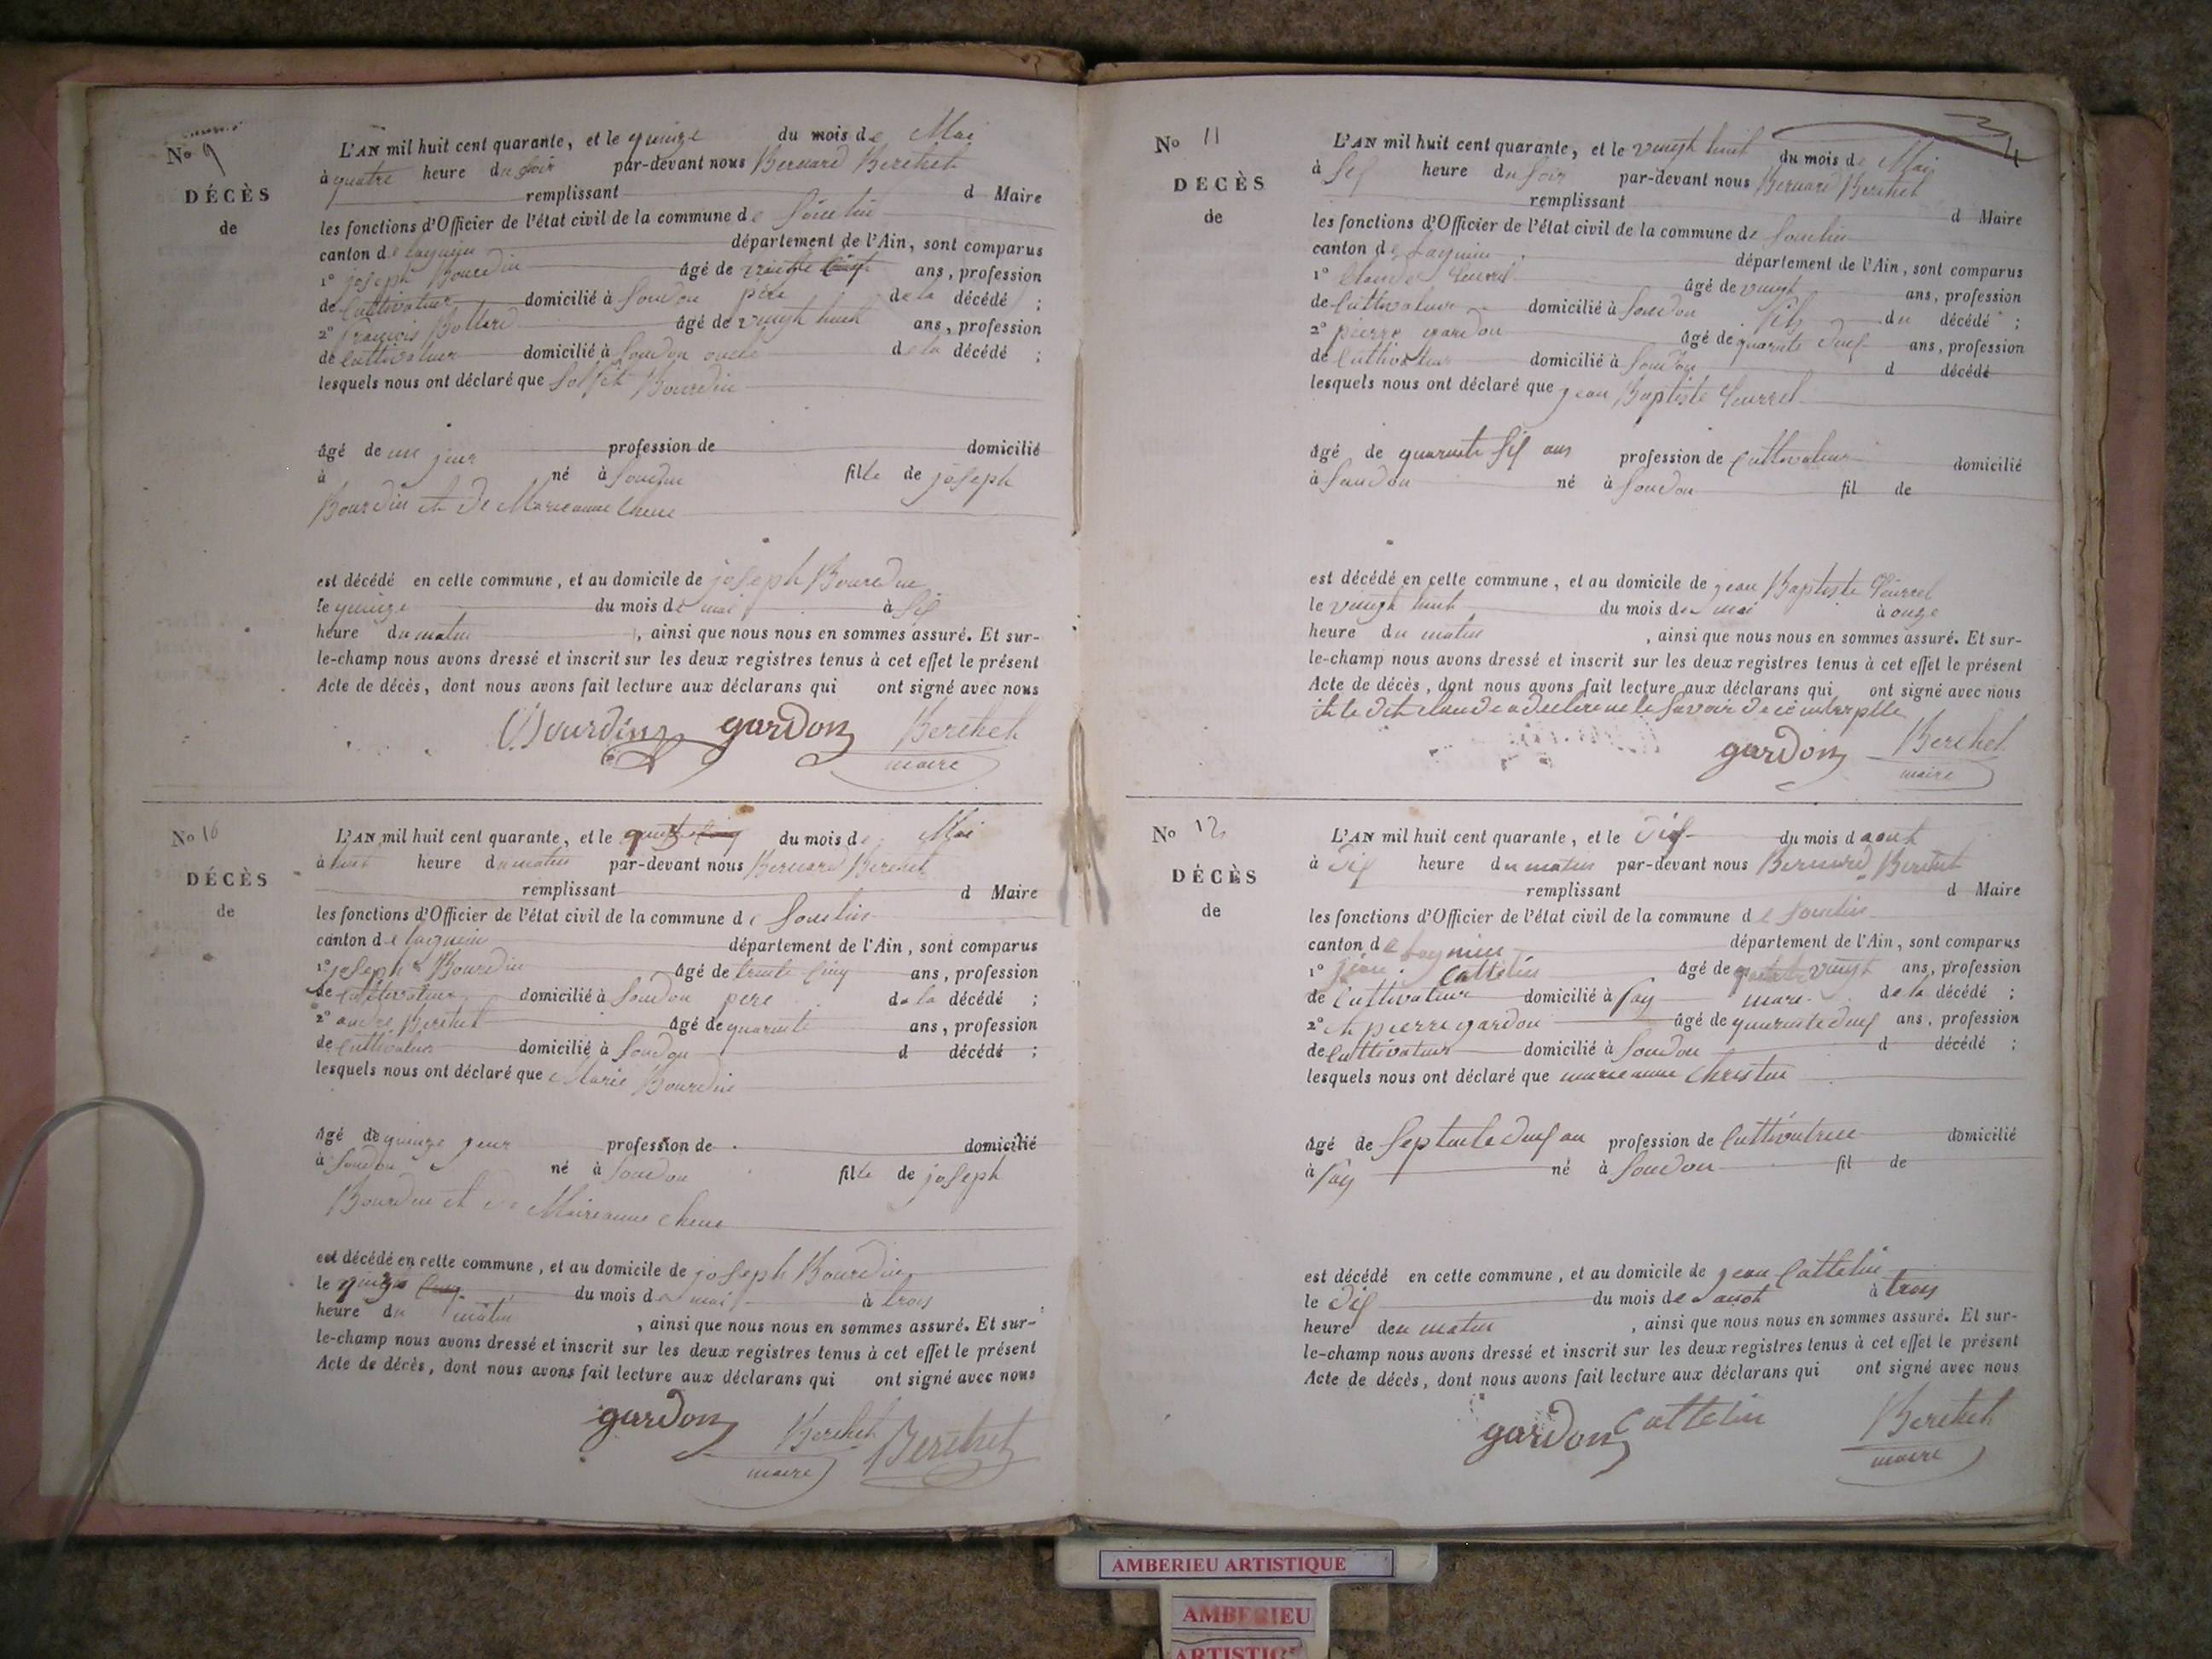 No 9
DÉCÈS
de
L'AN mil huit cent quarante, et le quinze du mois de Mai
à quatre heure du soir par-devant nous Bernard Berthet
remplissant d Maire
les fonctions d'Officier de l'état civil de la commune de
canton de lagnieu département de l'Ain, sont comparus
1° joseph Bourdin âgé de trente cinq ans, profession
de Cultivateur domicilié à Soudon père de la décédé ;
2° françois âgé de vingt huit ans, profession
de Cultivateur domicilié à Soudon oncle de la décédé ;
lesquels nous ont déclaré que Bourdin
âgé de un jour profession de domicilié
à né à Soudon fille de joseph
Bourdin et de Marieanne Chene
est décédé en cette commune, et au domicile de joseph Bourdin
le quinze du mois de mai à six
heure du matin , ainsi que nous nous en sommes assuré. Et sur-
le-champ nous avons dressé et inscrit sur les deux registres tenus à cet effet le présent
Acte de décès, dont nous avons fait lecture aux déclarans qui ont signé avec nous
Bourdin gardon Berthet
maire
No 10
DÉCÈS
de
L'AN mil huit cent quarante, et le du mois de Mai
à huit heure du matin par-devant nous Bernard Berthet
remplissant d Maire
les fonctions d'Officier de l'état civil de la commune de
canton de lagnieu département de l'Ain, sont comparus
1° joseph Bourdin âgé de trente cinq ans, profession
de cultivateur domicilié à Soudon père de la décédé ;
2° andre Berthet âgé de quarante ans, profession
de Cultivateur domicilié à Soudon d décédé ;
lesquels nous ont déclaré que Marie Bourdin
âgé de quinze jour profession de domicilié
à Soudon né à Soudon fille de joseph
Bourdin et de Marieanne chene
est décédé en cette commune, et au domicile de joseph Bourdin
le du mois de mai à trois
heure du matin , ainsi que nous nous en sommes assuré. Et sur-
le-champ nous avons dressé et inscrit sur les deux registres tenus à cet effet le présent
Acte de décès, dont nous avons fait lecture aux déclarans qui ont signé avec nous
gardon Berthet Berthet
maire
No 11
DÉCÈS
de
L'AN mil huit cent quarante, et le vingt huit du mois de Mai
à six heure du soir par-devant nous Bernard Berthet
remplissant d Maire
les fonctions d'Officier de l'état civil de la commune de
canton de Lagnieu département de l'Ain, sont comparus
1° Claude âgé de vingt ans, profession
de Cultivateur domicilié à Soudon fils du décédé ;
2° pierre gardon âgé de quarante ans, profession
de Cultivateur domicilié à Soudon d décédé
lesquels nous ont déclaré que jean Baptiste
âgé de quarante six ans profession de Cultivateur domicilié
à Soudon né à Soudon fil de
est décédé en cette commune, et au domicile de jean Baptiste
le vingt huit du mois de mai à onze
heure du matin , ainsi que nous nous en sommes assuré. Et sur-
le-champ nous avons dressé et inscrit sur les deux registres tenus à cet effet le présent
Acte de décès, dont nous avons fait lecture aux déclarans qui ont signé avec nous
claude a declere ne le savoir de ce
gardon Berthet
maire
No 12
DÉCÈS
de
L'AN mil huit cent quarante, et le dix du mois d aout
à dix heure du matin par-devant nous Bernard Berthet
remplissant d Maire
les fonctions d'Officier de l'état civil de la commune de
canton de lagnieu département de l'Ain, sont comparus
1° jean Cattelin âgé de quatre vingt ans, profession
de Cultivateur domicilié à fay mari de la décédé ;
2° et pierre gardon âgé de quarante ans, profession
de Cultivateur domicilié à Soudon d décédé ;
lesquels nous ont déclaré que marieanne Christin
âgé de profession de Cultivatrice domicilié
à fay né à Soudon fil de
est décédé en cette commune, et au domicile de jean Cattelin
le dix du mois de aout à trois
heure du matin , ainsi que nous nous en sommes assuré. Et sur-
le-champ nous avons dressé et inscrit sur les deux registres tenus à cet effet le présent
Acte de décès, dont nous avons fait lecture aux déclarans qui ont signé avec nous
gardon Cattelin Berthet
maire
AMBERIEU ARTISTIQUE
AMBERIEU